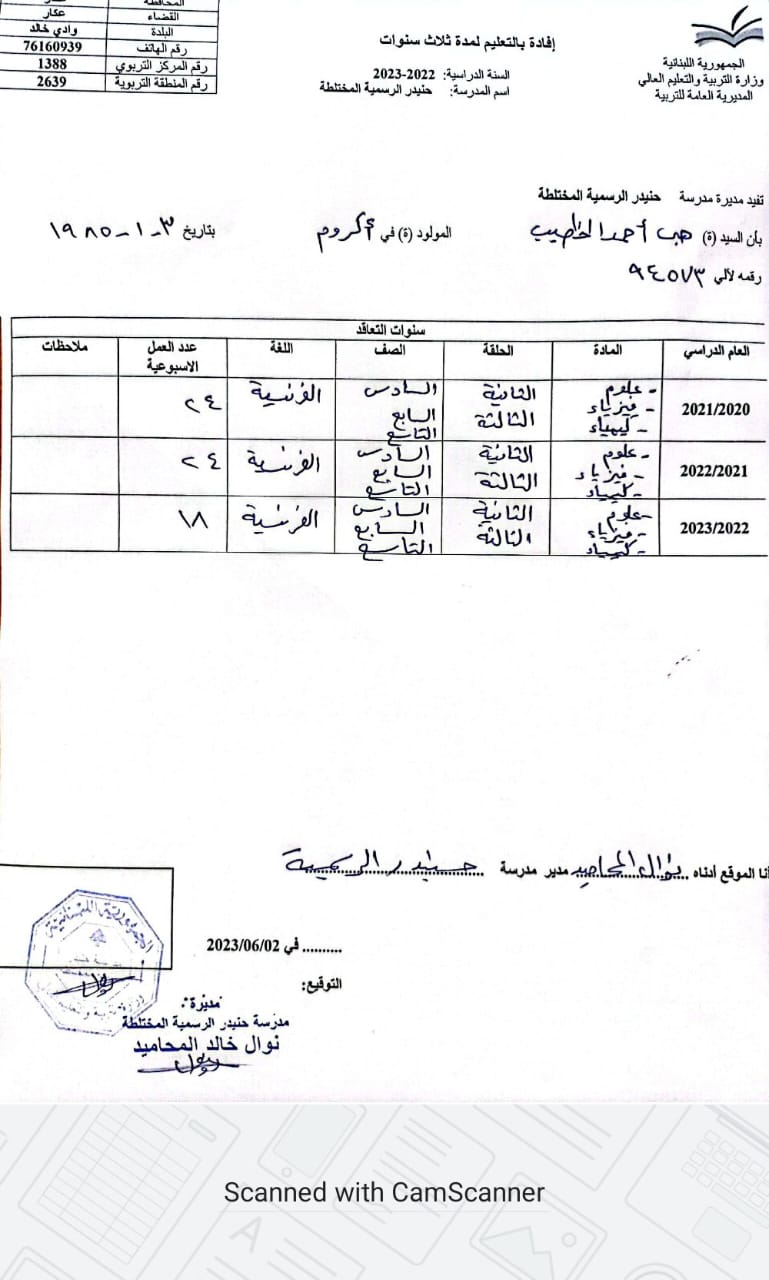 الجمهورية اللبنانية
وزارة التربية والتعليم العالي
المديرية العامة للتربية
إفادة بالتعليم لمدة ثلاث سنوات
السنة الدراسية: 2022-2023
اسم المدرسة: حنيدر الرسمية المختلطة
المحافظة
القضاء عكار
البلدة وادي خالد
رقم الهاتف 76160939
رقم المركز التربوي 1388
رقم المنطقة التربوية 2639
تفيد مديرة مدرسة حنيدر الرسمية المختلطة
بأن السيد (ة) هبى أحمد الخطيب المولود (ة) في أكروم بتاريخ ٣-١-١٩٨٥
رقمه لألي ٩٤٥٧٣
سنوات التعاقد
العام الدراسي المادة الحلقة الصف اللغة عدد العمل الاسبوعية ملاحظات
2021/2020 - علوم - فيزياء - كيمياء الثانية الثالثة السادس السابع التاسع الفرنسية ٢٤
2022/2021 - علوم - فيزياء - كيمياء الثانية الثالثة السادس السابع التاسع الفرنسية ٢٤
2023/2022 - علوم - فيزياء - كيمياء الثانية الثالثة السادس السابع التاسع الفرنسية ١٨
أنا الموقع أدناه نوال المحاميد مدير مدرسة حنيدر الرسمية
.......... في 2023/06/02
التوقيع:
مديرة:
مدرسة حنيدر الرسمية المختلطة
نوال خالد المحاميد
الجمهورية اللبنانية
Scanned with CamScanner